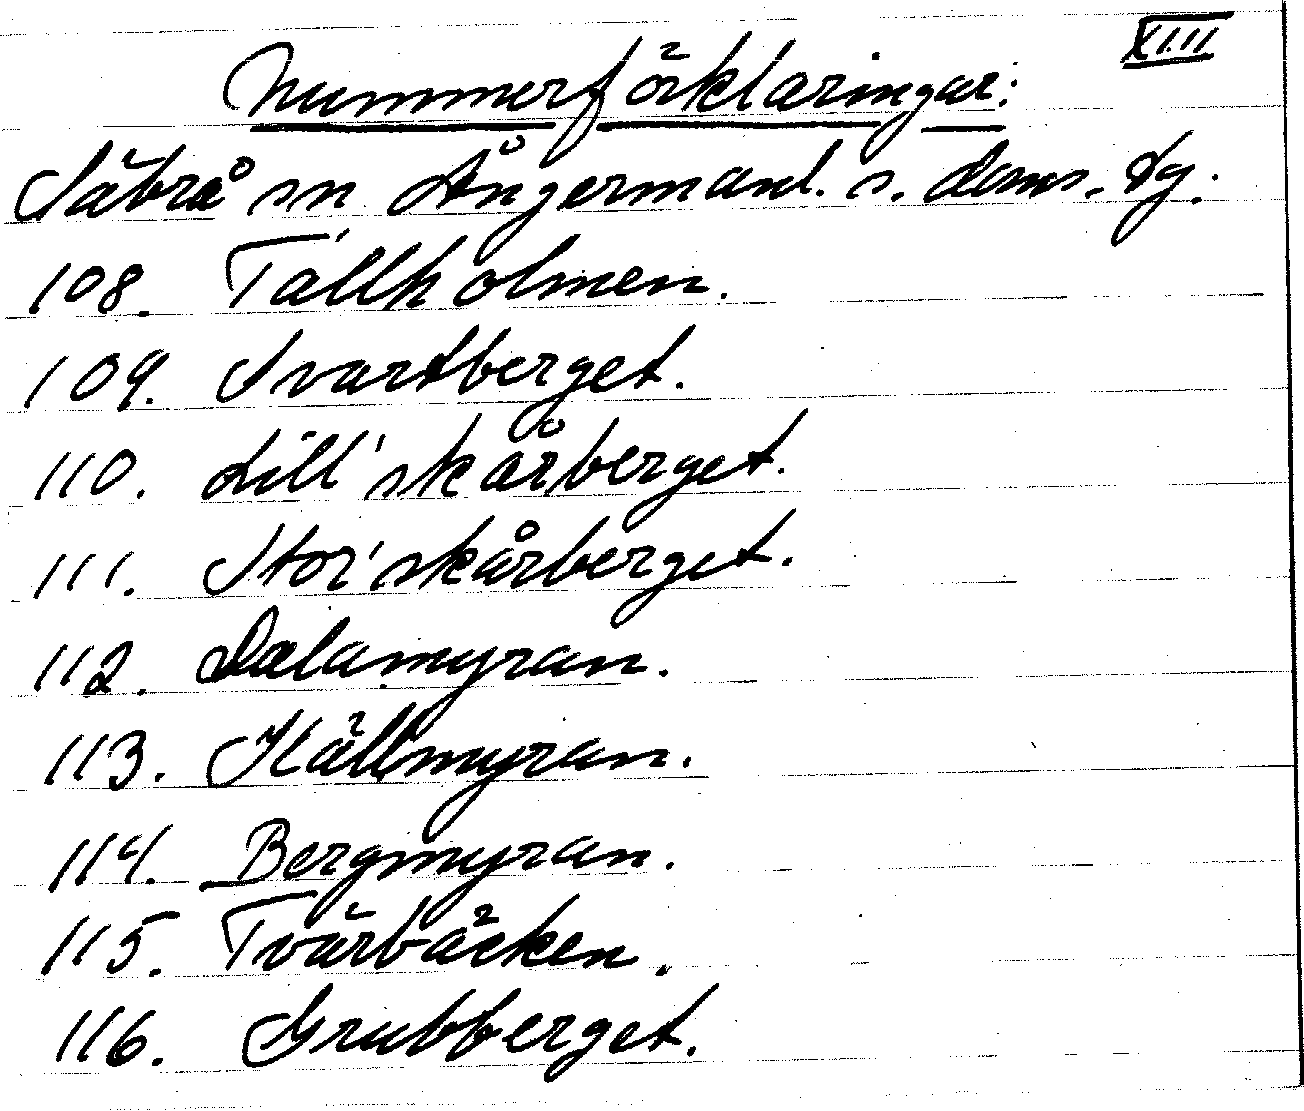 XIII
Nummerförklaringar:
Säbrå sn Ångermanl. s. doms. dg.
108. Tallholmen.
109. Svartberget.
110. Lill'skårberget.
111. Stor'skårberget.
112. Dalamyran.
113. Hällmyran.
114. Bergmyran.
115. Tvärbäcken.
116. Grubberget.